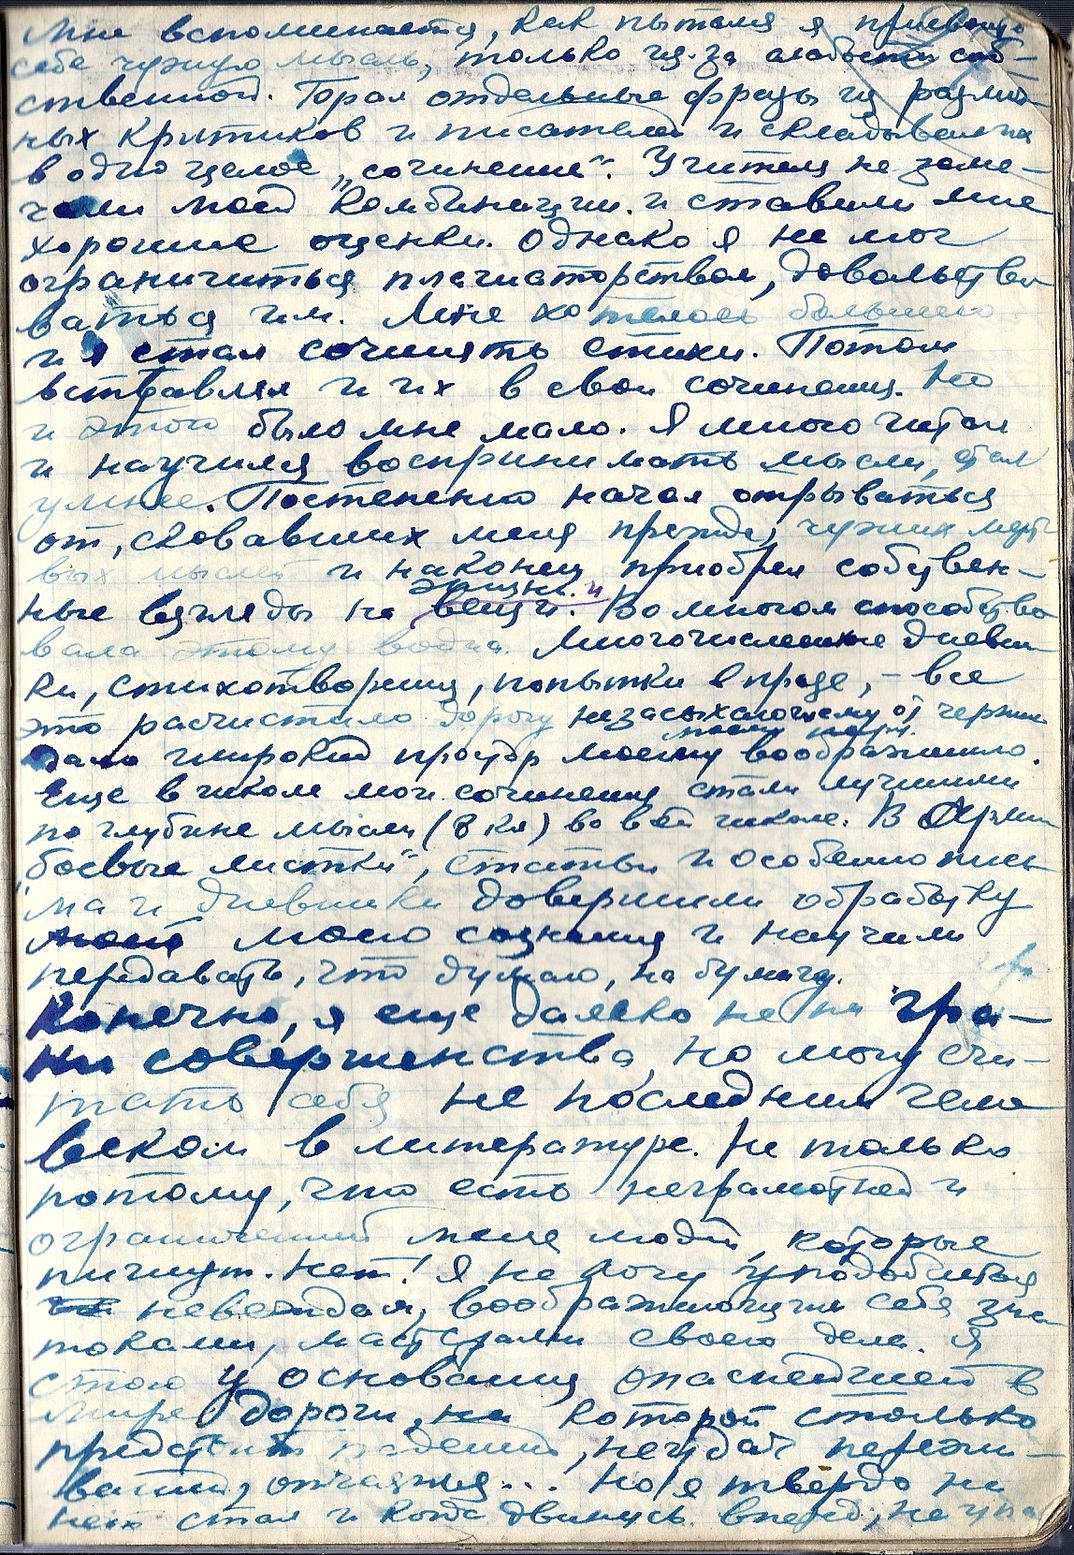 Мне вспоминается, как пытался я присвоить
себе чужую мысль, только из-за слабости соб-
ственной. Брал отдельные фразы из различ-
ных критиков и писателей и складывал их
в одно целое „сочинение“. Учителя не заме-
чали моей комбинации и ставили мне
хорошие оценки. Однако я не мог
ограничиться плагиаторством, довольство-
ваться им. Мне хотелось большего
и я стал сочинять стихи. Потом
вставлял и их в свои сочинения. Но
и этого было мне мало. Я много читал
и научился воспринимать мысли, стал
умнее. Постепенно начал отрываться
от, сковавших меня прежде, чужих мерт-
вых мыслей и наконец приобрел собствен-
жизнь и
ные взгляды на вещи. Во многом способство
вала этому война. Многочисленные дневни-
ки, стихотворения, попытки в прозе, – все
это расчистило дорогу незасыхающему от чернил
моему перу.
дало широкий простор моему воображению.
Еще в школе мои сочинения стали лучшими
по глубине мысли (8 кл) во всей школе. В Армии
„боевые листки“, статьи и особенно пись-
ма и дневники довершили обработку
моего сознания и научили
передавать, что думаю, на бумагу.
Конечно, я еще далеко не на гра-
ни совершенства, но могу счи-
тать себя не последним чело
веком в литературе. Не только
потому, что есть неграмотней и
ограниченней меня люди, которые
пишут. Нет! Я не хочу уподобиться
невеждам, воображающим себя зна-
токами, мастерами своего дела. Я
стою у основания опаснейшей в
мире дороги, на которой столько
предстоит падений, неудач пережи-
ваний, отчаяния... Но я твердо на
неё стал и когда двинусь вперед, не упа